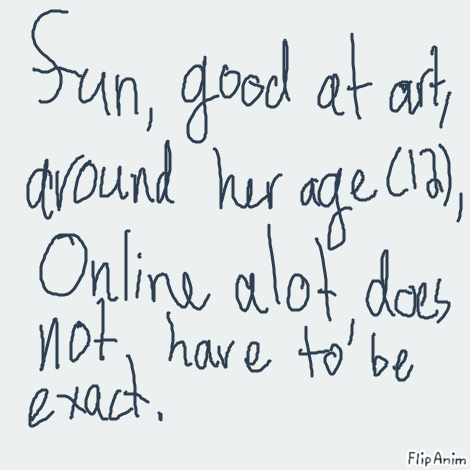 Fun, good at art,
around her age (12),
Online alot, does
not have to be
exact.
FlipAnim